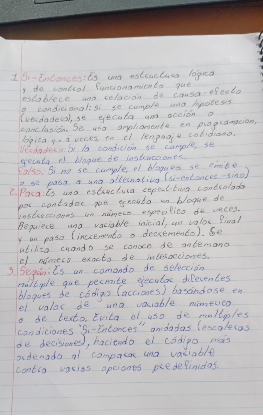 1. Si-Entonces: Es una estructura lógica
y de control funcionamiento que
establece una relación de causa-efecto
o condicional: si se cumple una hipótesis
(verdadera), se ejecuta una acción o
conclusión. Se usa ampliamente en programación,
lógica y a veces en el lenguaje cotidiano.
Verdadera: Si la condición se cumple, se
ejecuta el bloque de instrucciones.
Falso: Si no se cumple, el bloque se
o se pasa a una alternativa (si-entonces-sino)
2. Para: Es una estructura repetitiva controlada
por contador que ejecuta un bloque de
instrucciones un número específico de veces.
Requiere una variable inicial, un valor final
y un paso (incremento o decremento). Se
utiliza cuando se conoce de antemano
el número exacto de interacciones.
3. Según: Es un comando de selección
múltiple que permite ejecutar diferentes
bloques de código (acciones) basándose en
el valor de una variable numérica
o de texto. Evita el uso de múltiples
condiciones "Si-Entonces" anidadas (escaleras
de decisiones), haciendo el código más
ordenado al comparar una variable
contra varias opciones predefinidas.